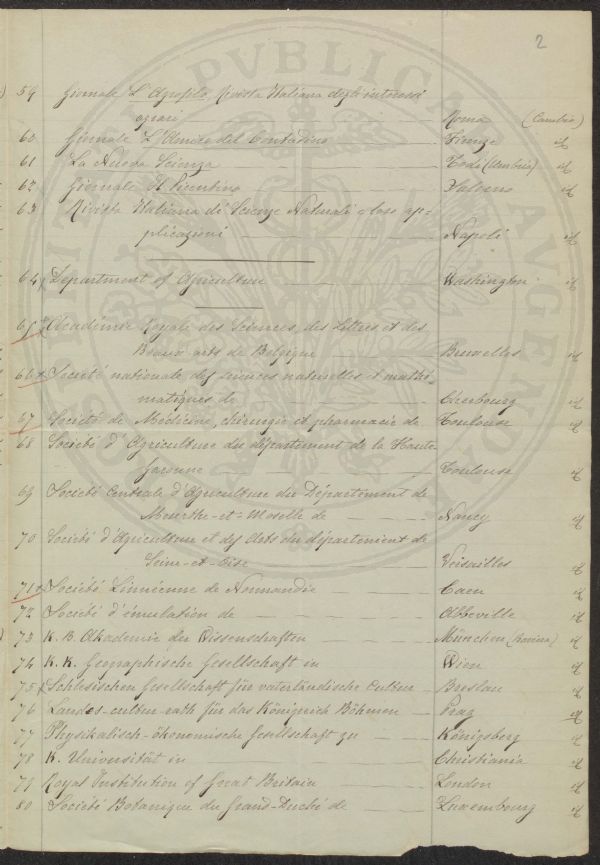 2
59 Giornale L'Agrofilo, Rivista Italiana degli interessi
agrari — Roma (Cambio)
60 Giornale L'Amico del Contadino — Firenze id
61 La Nuova Scienza — Todi (Umbria) id
62 Giornale Il Picentino — Salerno id
63 Rivista Italiana di Scienze Naturali e loro ap-
plicazioni — Napoli id
64 Department of Agriculture — Washington id
65 Académie Royale des Sciences, des Lettres et des
Beaux arts de Belgique — Bruxelles id
66 Société nationale des sciences naturelles et mathé-
matiques de — Cherbourg id
67 Société de Médecine, chirurgie et pharmacie de Toulouse id
68 Société d'Agriculture du département de la Haute-
Garonne — Toulouse id
69 Société Centrale d'Agriculture du Département de
Meurthe-et-Moselle de — Nancy id
70 Société d'Agriculture et des Arts du département de
Seine-et-Oise — Versailles id
71 Société Linnéenne de Normandie — Caen id
72 Société d'émulation de — Abbeville id
73 K. B. Akademie der Wissenschaften — München id
74 K. K. Geographische Gesellschaft in Wien id
75 Schlesischen Gesellschaft für vaterländische Cultur — Breslau id
76 Landes-cultur-rath für das Königreich Böhmen — Prag id
77 Physikalisch-ökonomische Gesellschaft zu — Königsberg id
78 K. Universität in — Christiania id
79 Royal Institution of Great Britain — London id
80 Société Botanique du Grand-Duché de — Luxembourg id